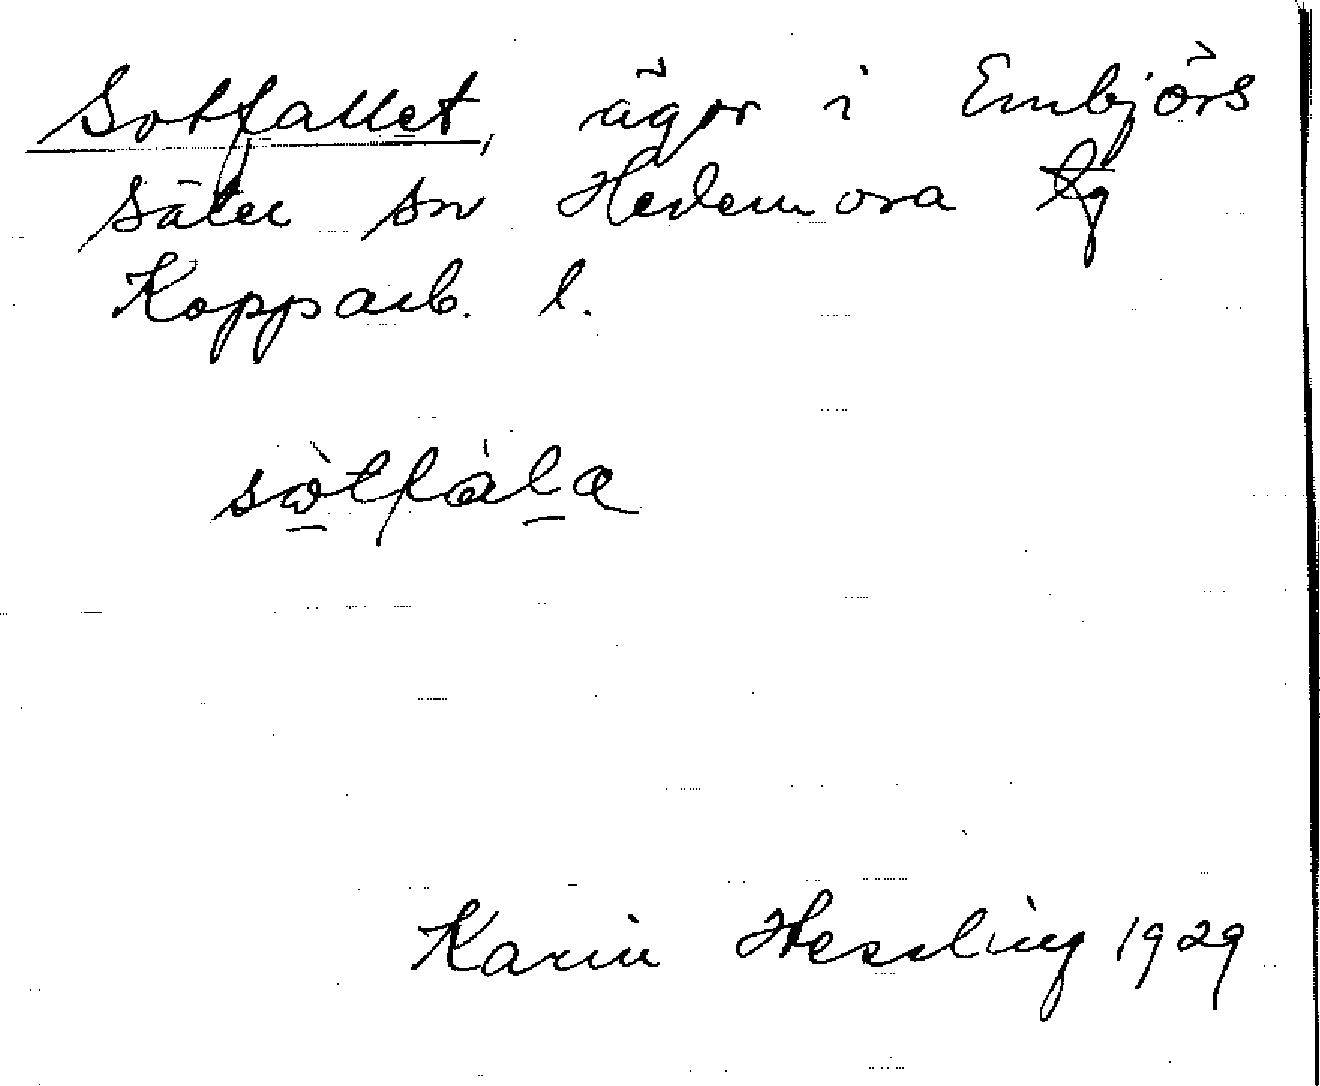 Sotfallet, ägor i Embjörs
säter sn Hedemora tg
Kopparb. l.
sòtfàla
Karin Hessling 1929